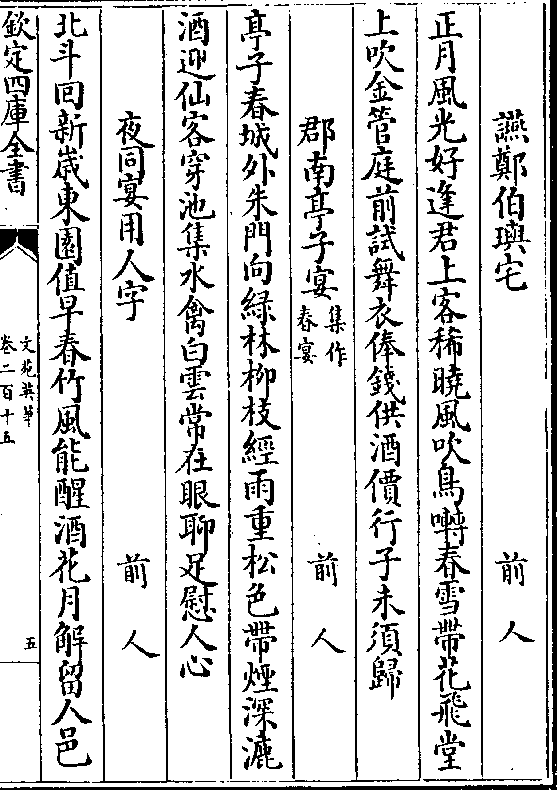 讌鄭伯璵宅　前人
正月風光好逢君上客稀曉風吹鳥囀春雪帶花飛堂
上吹金管庭前試舞衣俸錢供酒價行子未須歸
郡南亭子宴集作春宴　前人
亭子春城外朱門向綠林柳枝經雨重松色帶煙深漉
酒迎仙客穿池集水禽白雲常在眼聊足慰人心
夜同宴用人字　前人
北斗回新歲東園值早春竹風能醒酒花月解留人邑
欽定四庫全書
文苑英華
卷二百十五
五